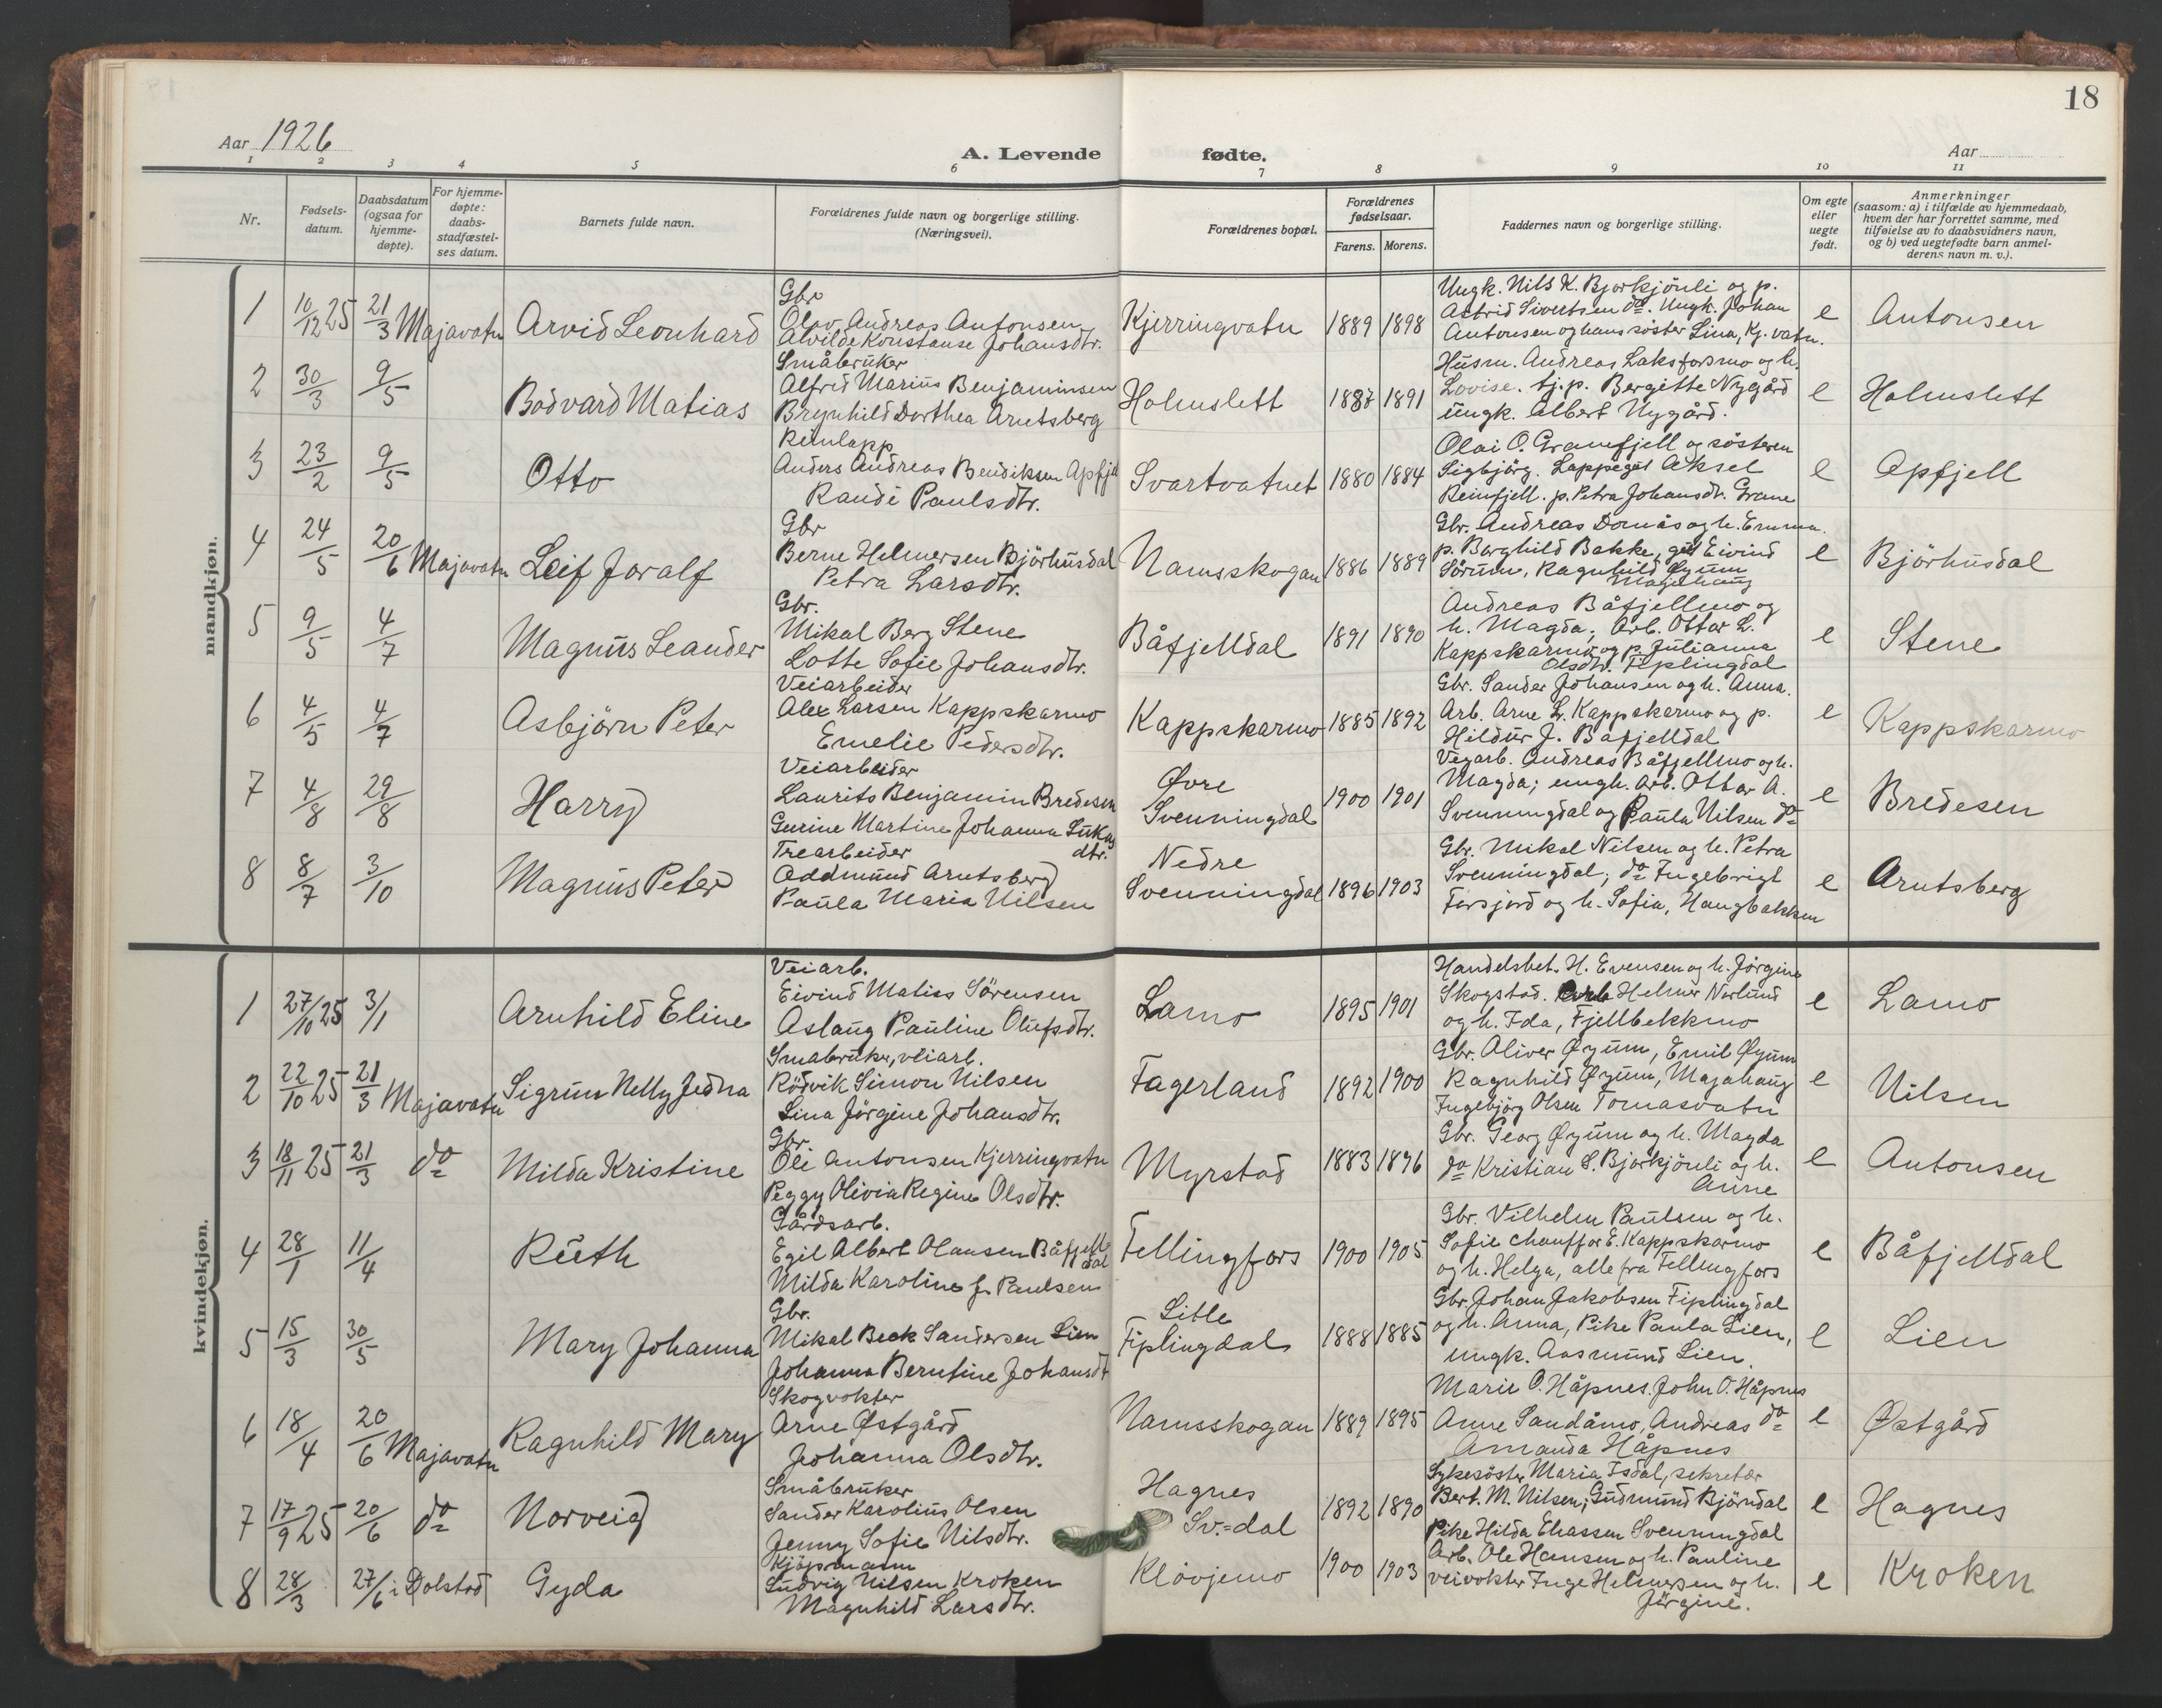 18
Aar 1926
A. Levende fødte.
Aar
1 2 3 4 5 6 7 8 9 10 11
Nr.
Fødsels-
datum.
Daabsdatum
(ogsaa for
hjemme-
døpte).
For hjemme-
døpte:
daabs-
stadfæstel-
ses datum.
Barnets fulde navn.
Forældrenes fulde navn og borgerlige stilling.
(Næringsvei).
Forældrenes bopæl.
Forældrenes
fødselsaar.
Farens. Morens.
Faddernes navn og borgerlige stilling.
Om egte
eller
uegte
født.
Anmerkninger
(saasom: a) i tilfælde av hjemmedaab,
hvem der har forrettet samme, med
tilføielse av to daabsvidners navn,
og b) ved uegtefødte barn anmel-
derens navn m. v.).
mandkjøn.
1 10/12 25 21/3 Majavatn Arvid Leonhard
Gbr
Olav Andreas Antonsen
Alvilde Konstanse Johansdtr.
Kjerringvatn 1889 1898
Ungk. Nils K. Bjorkjönli og p.
Astrid Sivertsen do. Ungk. Johan
Antonsen og hans söster Lina, Kj. vatn.
e Antonsen
2 30/3 9/5 Bodvard Matias
Småbruker
Alfrid Marius Benjaminsen
Brynhild Dorthea Arntsberg
Holmslett 1887 1891
Husm. Andreas Laksforsmo og h.
Lovise. tj.p. Bergitte Nygård
ungk. Albert Nygård.
e Holmslett
3 23/2 9/5 Otto
Reinlapp
Anders Andreas Bendiksen Apfjell
Randi Paulsdtr.
Svartvatnet 1880 1884
Olai O. Granefjell og sösteren
Sigbjörg. Lappegut Aksel
Reinfjell. p. Petra Johansdr. Grane
e Apfjell
4 24/5 20/6 Majavatn Leif Joralf
Gbr
Berne Helmersen Björhusdal
Petra Larsdtr.
Namsskogan 1886 1889
Gbr. Andreas Domås og h. Emma.
p. Borghild Bakke, gut Eivind
Sörum, Ragnhild Øyum
Majahaug
e Björhusdal
5 9/5 4/7 Magnus Leander
Gbr.
Mikal Berg Stene
Lotte Sofie Johansdtr.
Båfjelldal 1891 1890
Andreas Båfjellmo og
h. Magda; Arb. Ottar L.
Kappskarmo og p. Julianna
Olsdtr. Fiplingdal
e Stene
6 4/5 4/7 Asbjörn Peter
Veiarbeider
Alex Larsen Kappskarmo
Emelie Pedersdtr.
Kappskarmo 1885 1892
Gbr. Sander Johansen og h. Anna.
Arb. Arne L. Kappskarmo og p.
Hildur J. Båfjelldal
e Kappskarmo
7 4/8 29/8 Harry
Veiarbeider
Laurits Benjamin Bredesen
Gurine Martine Johanna Lukas
dtr.
Øvre
Svenningdal 1900 1901
Vegarb. Andreas Båfjellmo og h.
Magda; ungk. arb. Ottar A.
Svenningdal og Paula Nilsen do
e Bredesen
8 8/7 3/10 Magnus Peter
Trearbeider
Oddmund Arntsberg
Paula Maria Nilsen
Nedre
Svenningdal 1896 1903
Gbr. Mikal Nilsen og h. Petra
Svenningdal; do Ingebrigt
Forsjord og h. Sofia, Haugbakken
e Arntsberg
kvindekjøn.
1 27/10 25 3/1 Arnhild Eline
Veiarb.
Eivind Matias Sörensen
Aslaug Pauline Olufsdtr.
Lamo 1895 1901
Handelsbet. H. Evensen og h. Jörgine
Skogstad. Arb Helmer Norlund
og h. Ida, Fjellbekkmo
e Lamo
2 22/10 25 21/3 Majavatn Sigrun Nelly Jedna
Smabruker, veiarb.
Rödvik Simon Nilsen
Lina Jörgine Johansdtr.
Fagerland 1892 1900
Gbr. Oliver Øyum, Emil Øyum
Ragnhild Øyum, Majahaug
Ingebjörg Olsen Tomasvatn
e Nilsen
3 18/11 25 21/3 do Milda Kristine
Gbr.
Oli Antonsen Kjerringvatn
Peggy Olivia Regine Olsdtr.
Myrstad 1883 1896
Gbr. Georg Øyum og h. Magda
do Kristian S. Bjorkjönli og h.
Anne
e Antonsen
4 28/1 11/4 Ruth
Gårdsarb.
Egil Albert Olausen Båfjell-
dal
Milda Karoline f. Paulsen
Fellingfors 1900 1905
Gbr. Vilhelm Paulsen og h.
Sofie chauffør E. Kappskarmo
og h. Helga, alle fra Fellingfors
e Båfjelldal
5 15/3 30/5 Mary Johanna
Gbr.
Mikal Beck Sandersen Lien
Johanna Berntine Johansdt
Litle
Fiplingdal 1888 1885
Gbr. Johan Jakobsen Fiplingdal
og h. Anna, Pike Paula Lien,
ungk. Aasmund Lien.
e Lien
6 18/4 20/6 Majavatn Ragnhild Mary
Skogvokter
Arne Østgård
Johanna Olsdtr.
Namsskogan 1889 1895
Marie O. Håpnes. John O. Håpnes
Anne Sandåmo, Andreas do
Amanda Håpnes
e Østgård
7 17/9 25 20/6 do Norveig
Småbruker
Sander Karolius Olsen
Jenny Sofie Nilsdtr.
Hagnes
Sv.=dal 1892 1890
Sykesöster Maria Isdal, sekretær
Bert. M. Nilsen; Gudmund Björndal
Pike Hilda Eliassen Svenningdal
e Hagnes
8 28/3 27/6 i Dolstad Gyda
Kjöpmann
Ludvig Nilsen Kroken
Magnhild Larsdtr.
Klovjemo 1900 1903
Arb. Ole Hansen og h. Pauline
veivokter Inge Helmersen og h.
Jörgine.
e Kroken